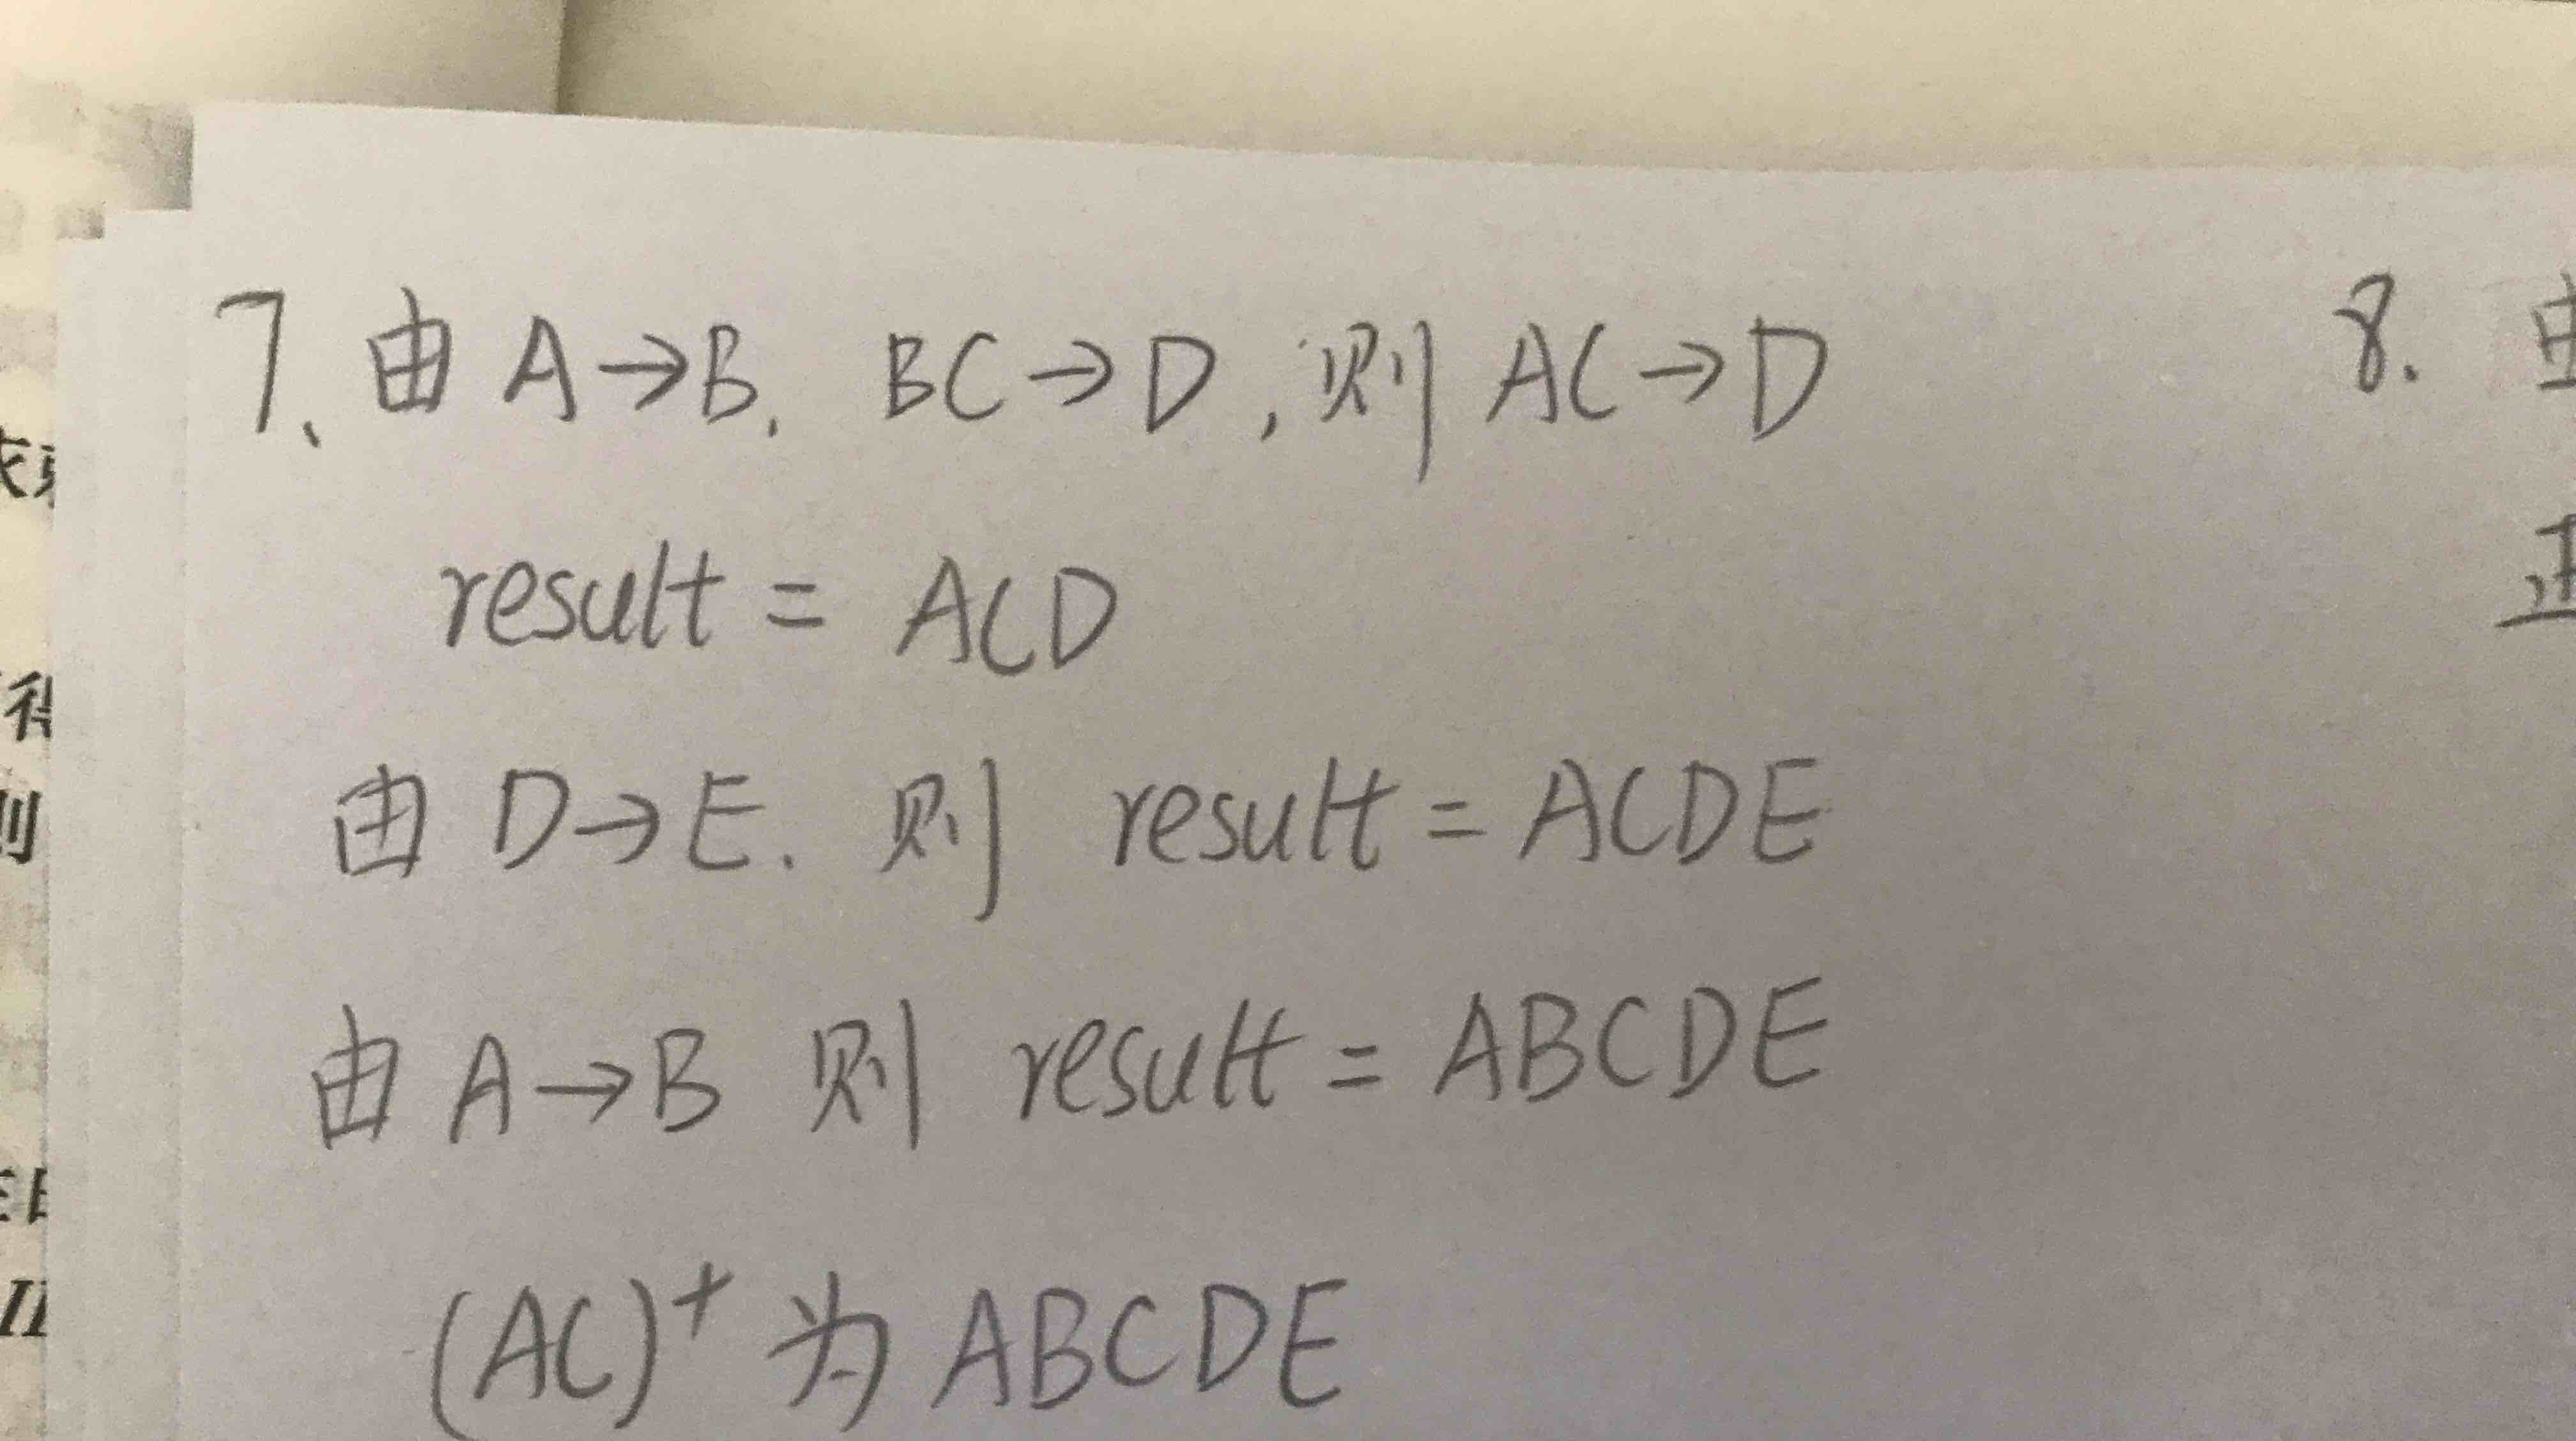 7、由 A→B. BC→D, 则 AC→D
result = ACD
由 D→E. 则 result = ACDE
由 A→B 则 result = ABCDE
(AC)⁺ 为 ABCDE
8. 由
则
II